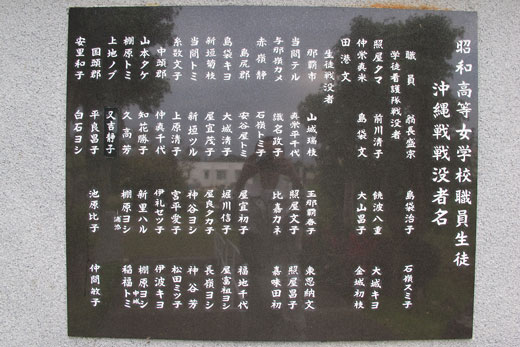 昭和高等女学校職員生徒
沖縄戦戦没者名
職員 翁長盛宗 島袋治子 石嶺スミ子
学徒看護隊戦没者
照屋タマ 前川清子 饒波八重 大城キヨ
仲栄真米 島袋文 大山昌子 金城初枝
田港文
生徒戦没者
那覇市 山城瑞枝 玉那覇春子 東恩納文
当間テル 真栄平千代 照屋文子 照屋昌子
与那嶺カメ 識名政子 比嘉カネ 嘉味田初
赤嶺静 石嶺トミ子
島尻郡 安谷屋トミ 屋宜初子 福地千代
島袋キヨ 大城清子 堀川信子 屋富祖ヨシ
新垣菊枝 屋宜茂子 屋良タカ子 長嶺ヨシ
当間トミ 新垣ツル 神谷ヨシ 神谷芳
糸数文子 上原清子 宮平愛子 松田ミツ子
中頭郡 仲真千代 伊礼セツ子 伊波キヨ
山本タケ 知花勝子 新里ハル 棚原ヨシ 中城
棚原トミ 久高芳 棚原ヨシ 浦添 稲福トミ
上地ノブ 又吉静子
国頭郡 平良昌子 池原比子 仲間敏子
安里和子 白石ヨシ